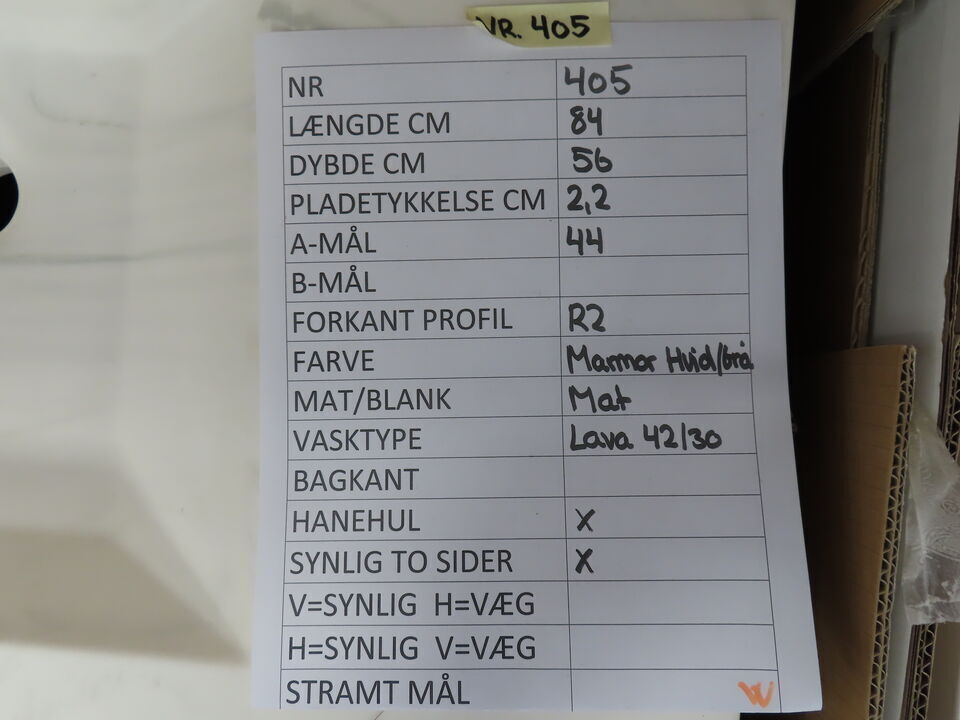 VR. 405
NR 405
LÆNGDE CM 84
DYBDE CM 56
PLADETYKKELSE CM 2,2
A-MÅL 44
B-MÅL
FORKANT PROFIL R2
FARVE Marmor Hvid/Grå
MAT/BLANK Mat
VASKTYPE Lava 42/30
BAGKANT
HANEHUL X
SYNLIG TO SIDER X
V=SYNLIG H=VÆG
H=SYNLIG V=VÆG
STRAMT MÅL W